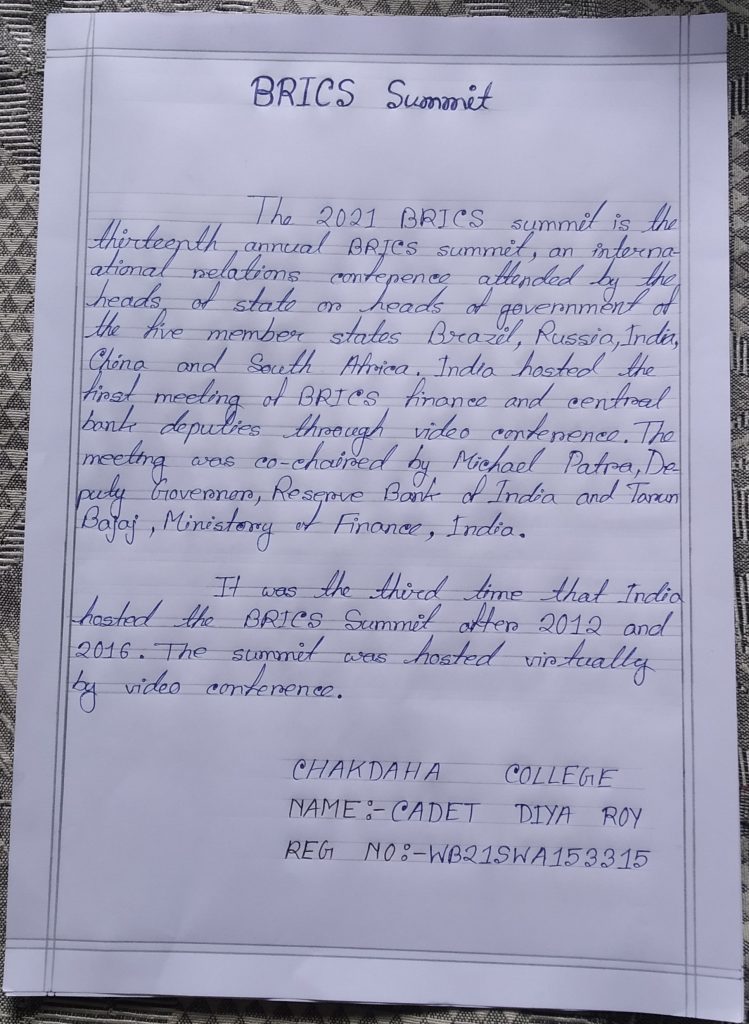 BRICS Summit
The 2021 BRICS summit is the
thirteenth annual BRICS summit, an interna-
ational relations conference attended by the
heads of state or heads of government of
the five member states Brazil, Russia, India,
China and South Africa. India hosted the
first meeting of BRICS finance and central
bank deputies through video conference. The
meeting was co-chaired by Michael Patra, De-
puty Governor, Reserve Bank of India and Tarun
Bajaj, Ministory of Finance, India.
It was the third time that India
hosted the BRICS Summit after 2012 and
2016. The summit was hosted virtually
by video conference.
CHAKDAHA COLLEGE
NAME:- CADET DIYA ROY
REG NO:- WB21SWA153315